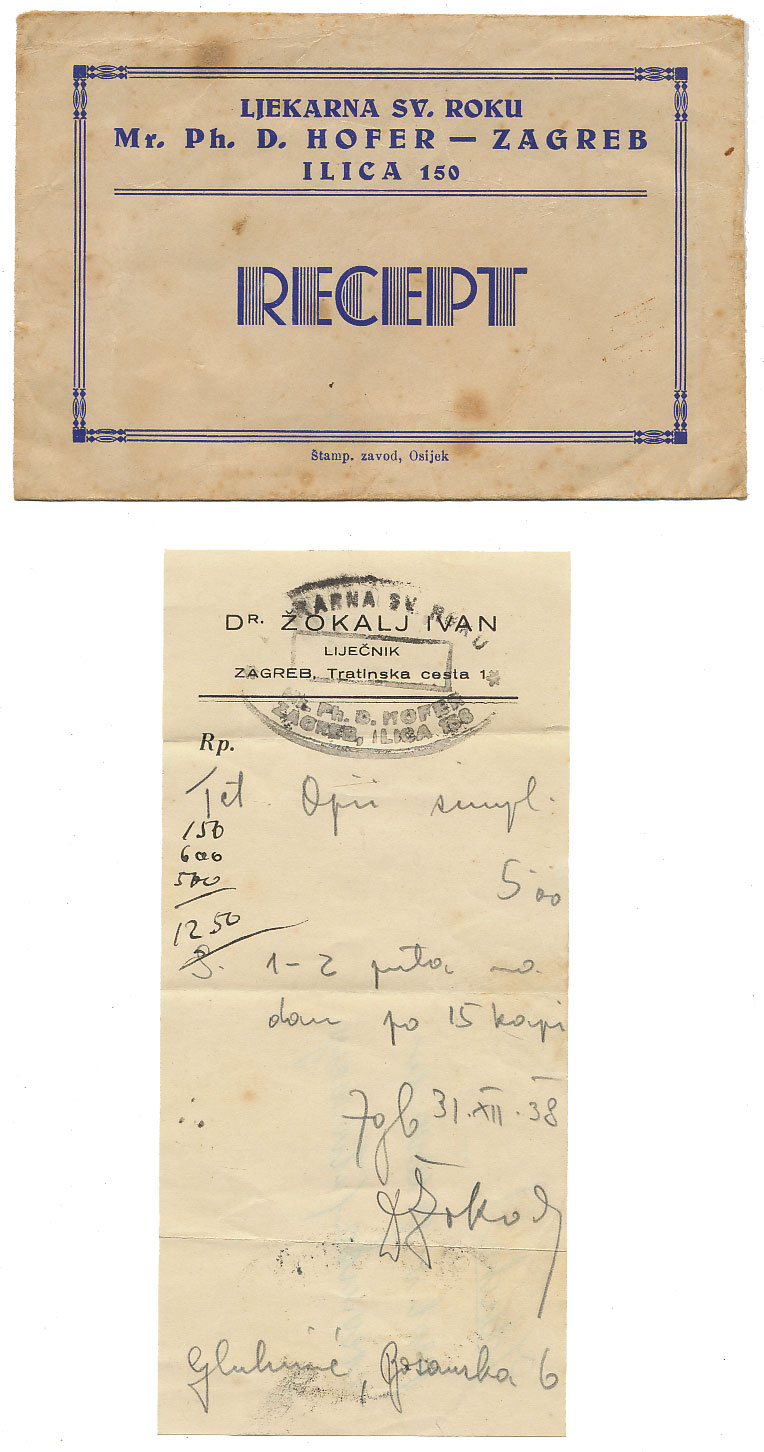 LJEKARNA SV. ROKU
Mr. Ph. D. HOFER — ZAGREB
ILICA 150
RECEPT
Štamp. zavod, Osijek
KARNA SV. ROKU
DR. ŽOKALJ IVAN
LIJEČNIK
ZAGREB, Tratinska cesta 1
Mr. Ph. D. HOFER
ZAGREB, ILICA 150
Rp.
Tct. Opii simpl.
150
600
500
1250
5'00
S. 1-2 puta na
dan po 15 kapi
Zgb 31.XII.38
Bosanska 6